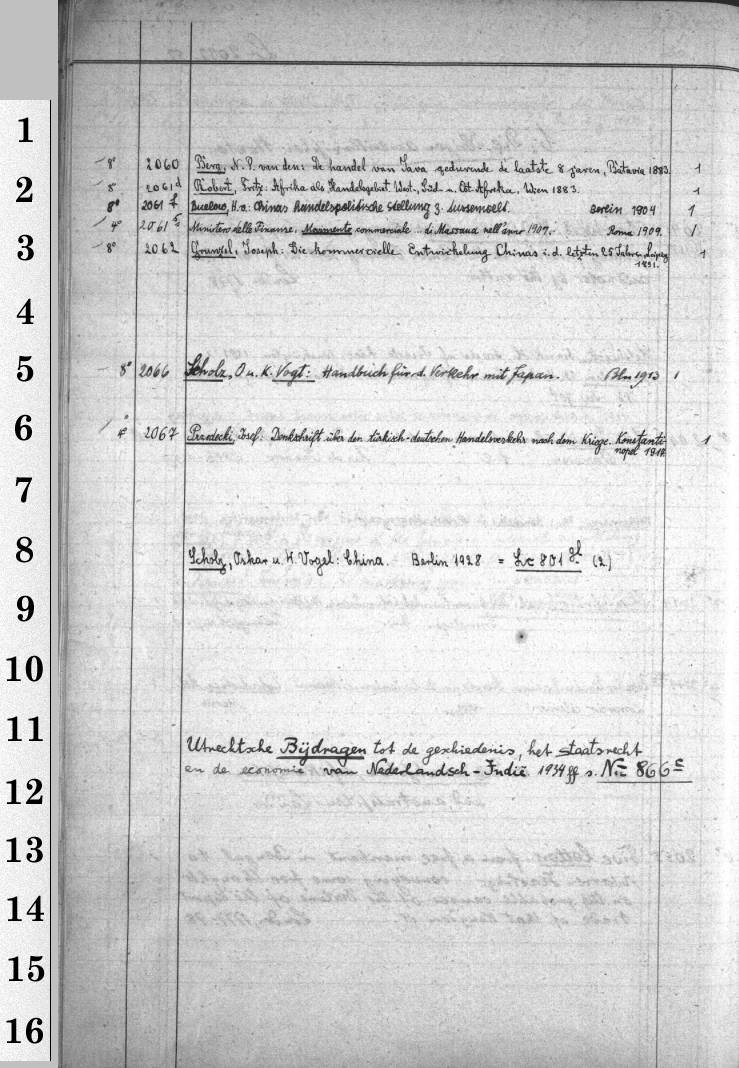 1
2
3
4
5
6
7
8
9
10
11
12
13
14
15
16
8° 2060 Berg, N. P. van den: De handel van Java gedurende de laatste 8 jaren, Batavia 1883. 1
8° 2061d Robert, Fritz: Afrika als Handelsgebiet. West-, Süd- u. Ost-Afrika, Wien 1883. 1
8° 2061f H. v: Chinas handelspolitische Stellung z. Aussenwelt. Berlin 1904 1
4° 2061 Ministero delle Finanze. Movimento commerciale di Massaua nell'anno 1907. Roma 1909. 1
8° 2062 Grunzel, Joseph: Die kommercielle Entwickelung Chinas i. d. letzten 25 Jahren. Leipzig 1
1891.
8° 2066 Scholz, O u. K. Vogt: Handbuch für d. Verkehr mit Japan. Bln 1913 1
4° 2067 Pradecki, Josef: Denkschrift über den türkisch-deutschen Handelsverkehr nach dem Kriege. Konstanti- 1
nopel 1917
Scholz, Oskar u. H. Vogel: China. Berlin 1928 = Lc 801 gl (2)
Utrechtsche Bijdragen tot de geschiedenis, het staatsrecht
en de economie van Nederlandsch-Indië. 1934 ff s. Nc 866 c